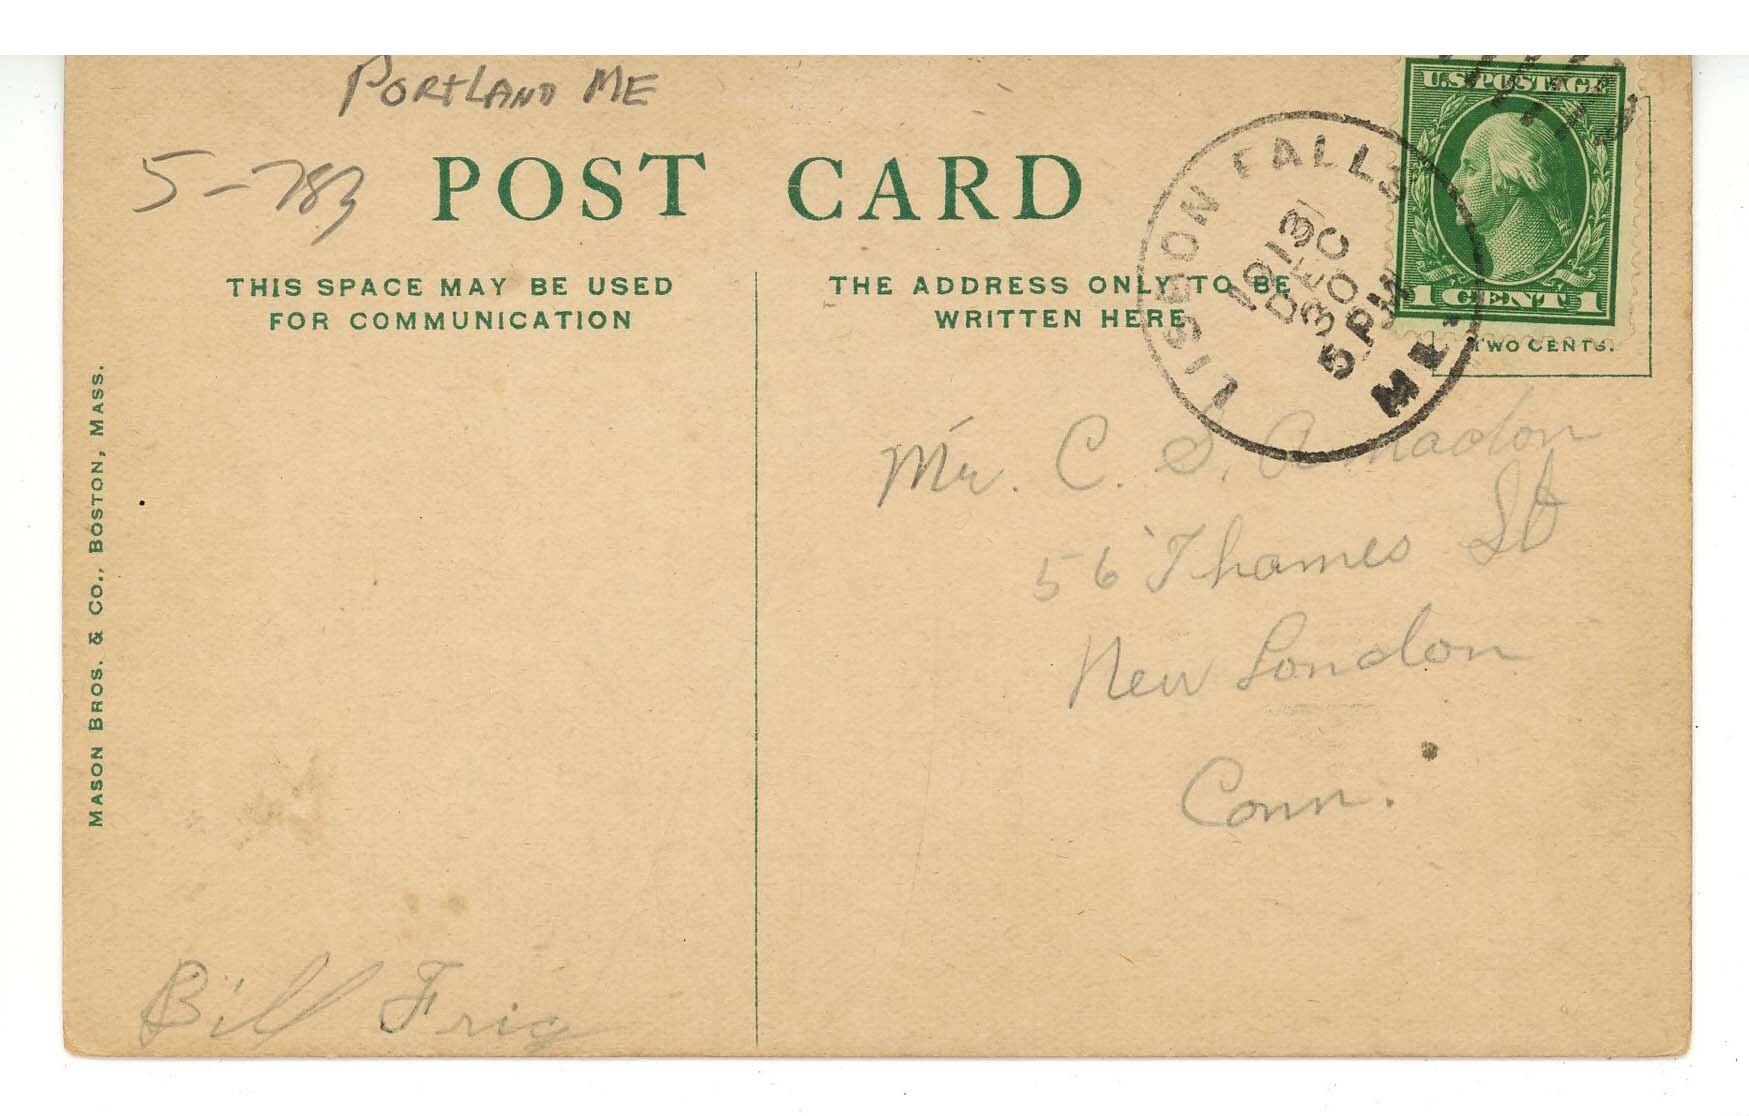 PORTLAND ME
5-783
POST CARD
THIS SPACE MAY BE USED
FOR COMMUNICATION
THE ADDRESS ONLY TO BE
WRITTEN HERE
U.S. POSTAGE
1 CENT 1
TWO CENTS.
LISBON FALLS
ME.
1913
DEC
30
5 PM
Mr. C. S. Amadon
56 Thames St
New London
Conn.
MASON BROS. & CO., BOSTON, MASS.
Bill Frig